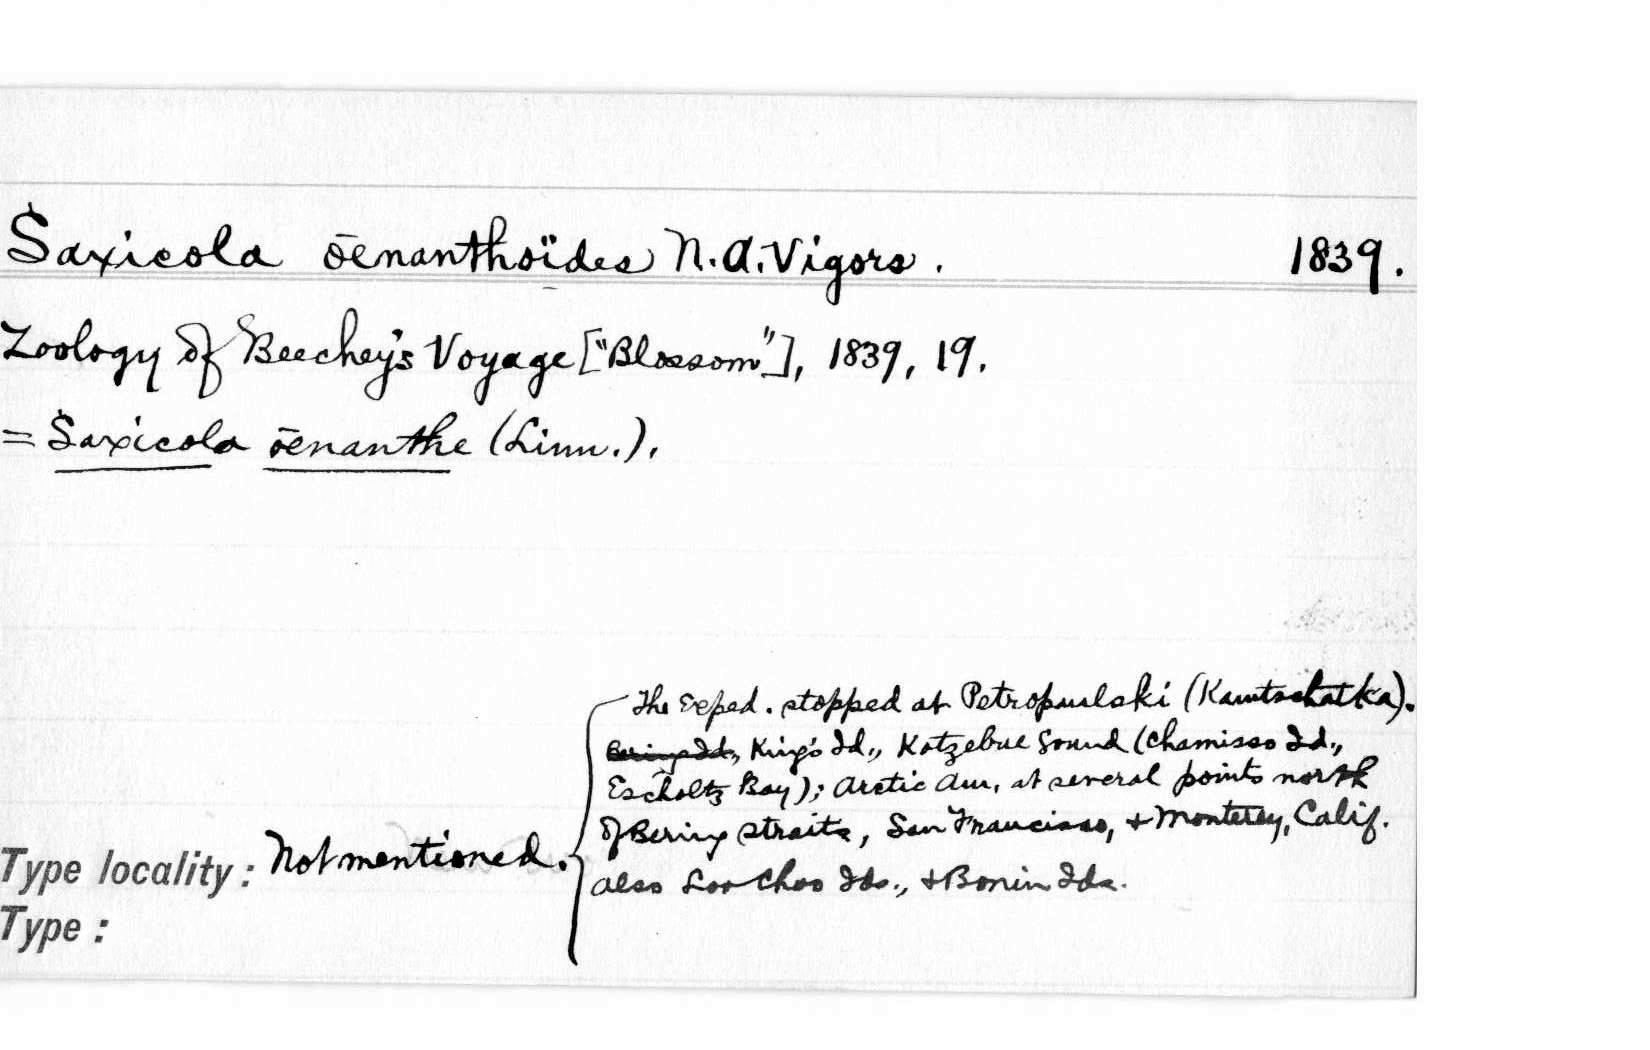 Saxicola ōēnanthoïdes N.A.Vigors. 1839.
Zoology of Beechey's Voyage ["Blossom"], 1839, 19.
= Saxicola ōēnanthe (Linn.).
The Exped. stopped at Petropaulski (Kamtschatka).
Bering Id., King's Id., Kotzebue Sound (Chamisso Id.,
Escholtz Bay); Arctic Am. at several points north
of Bering straits, San Francisco, + Monterey, Calif.
Type locality: Not mentioned. also Loo Choo Ids., + Bonin Ids.
Type: